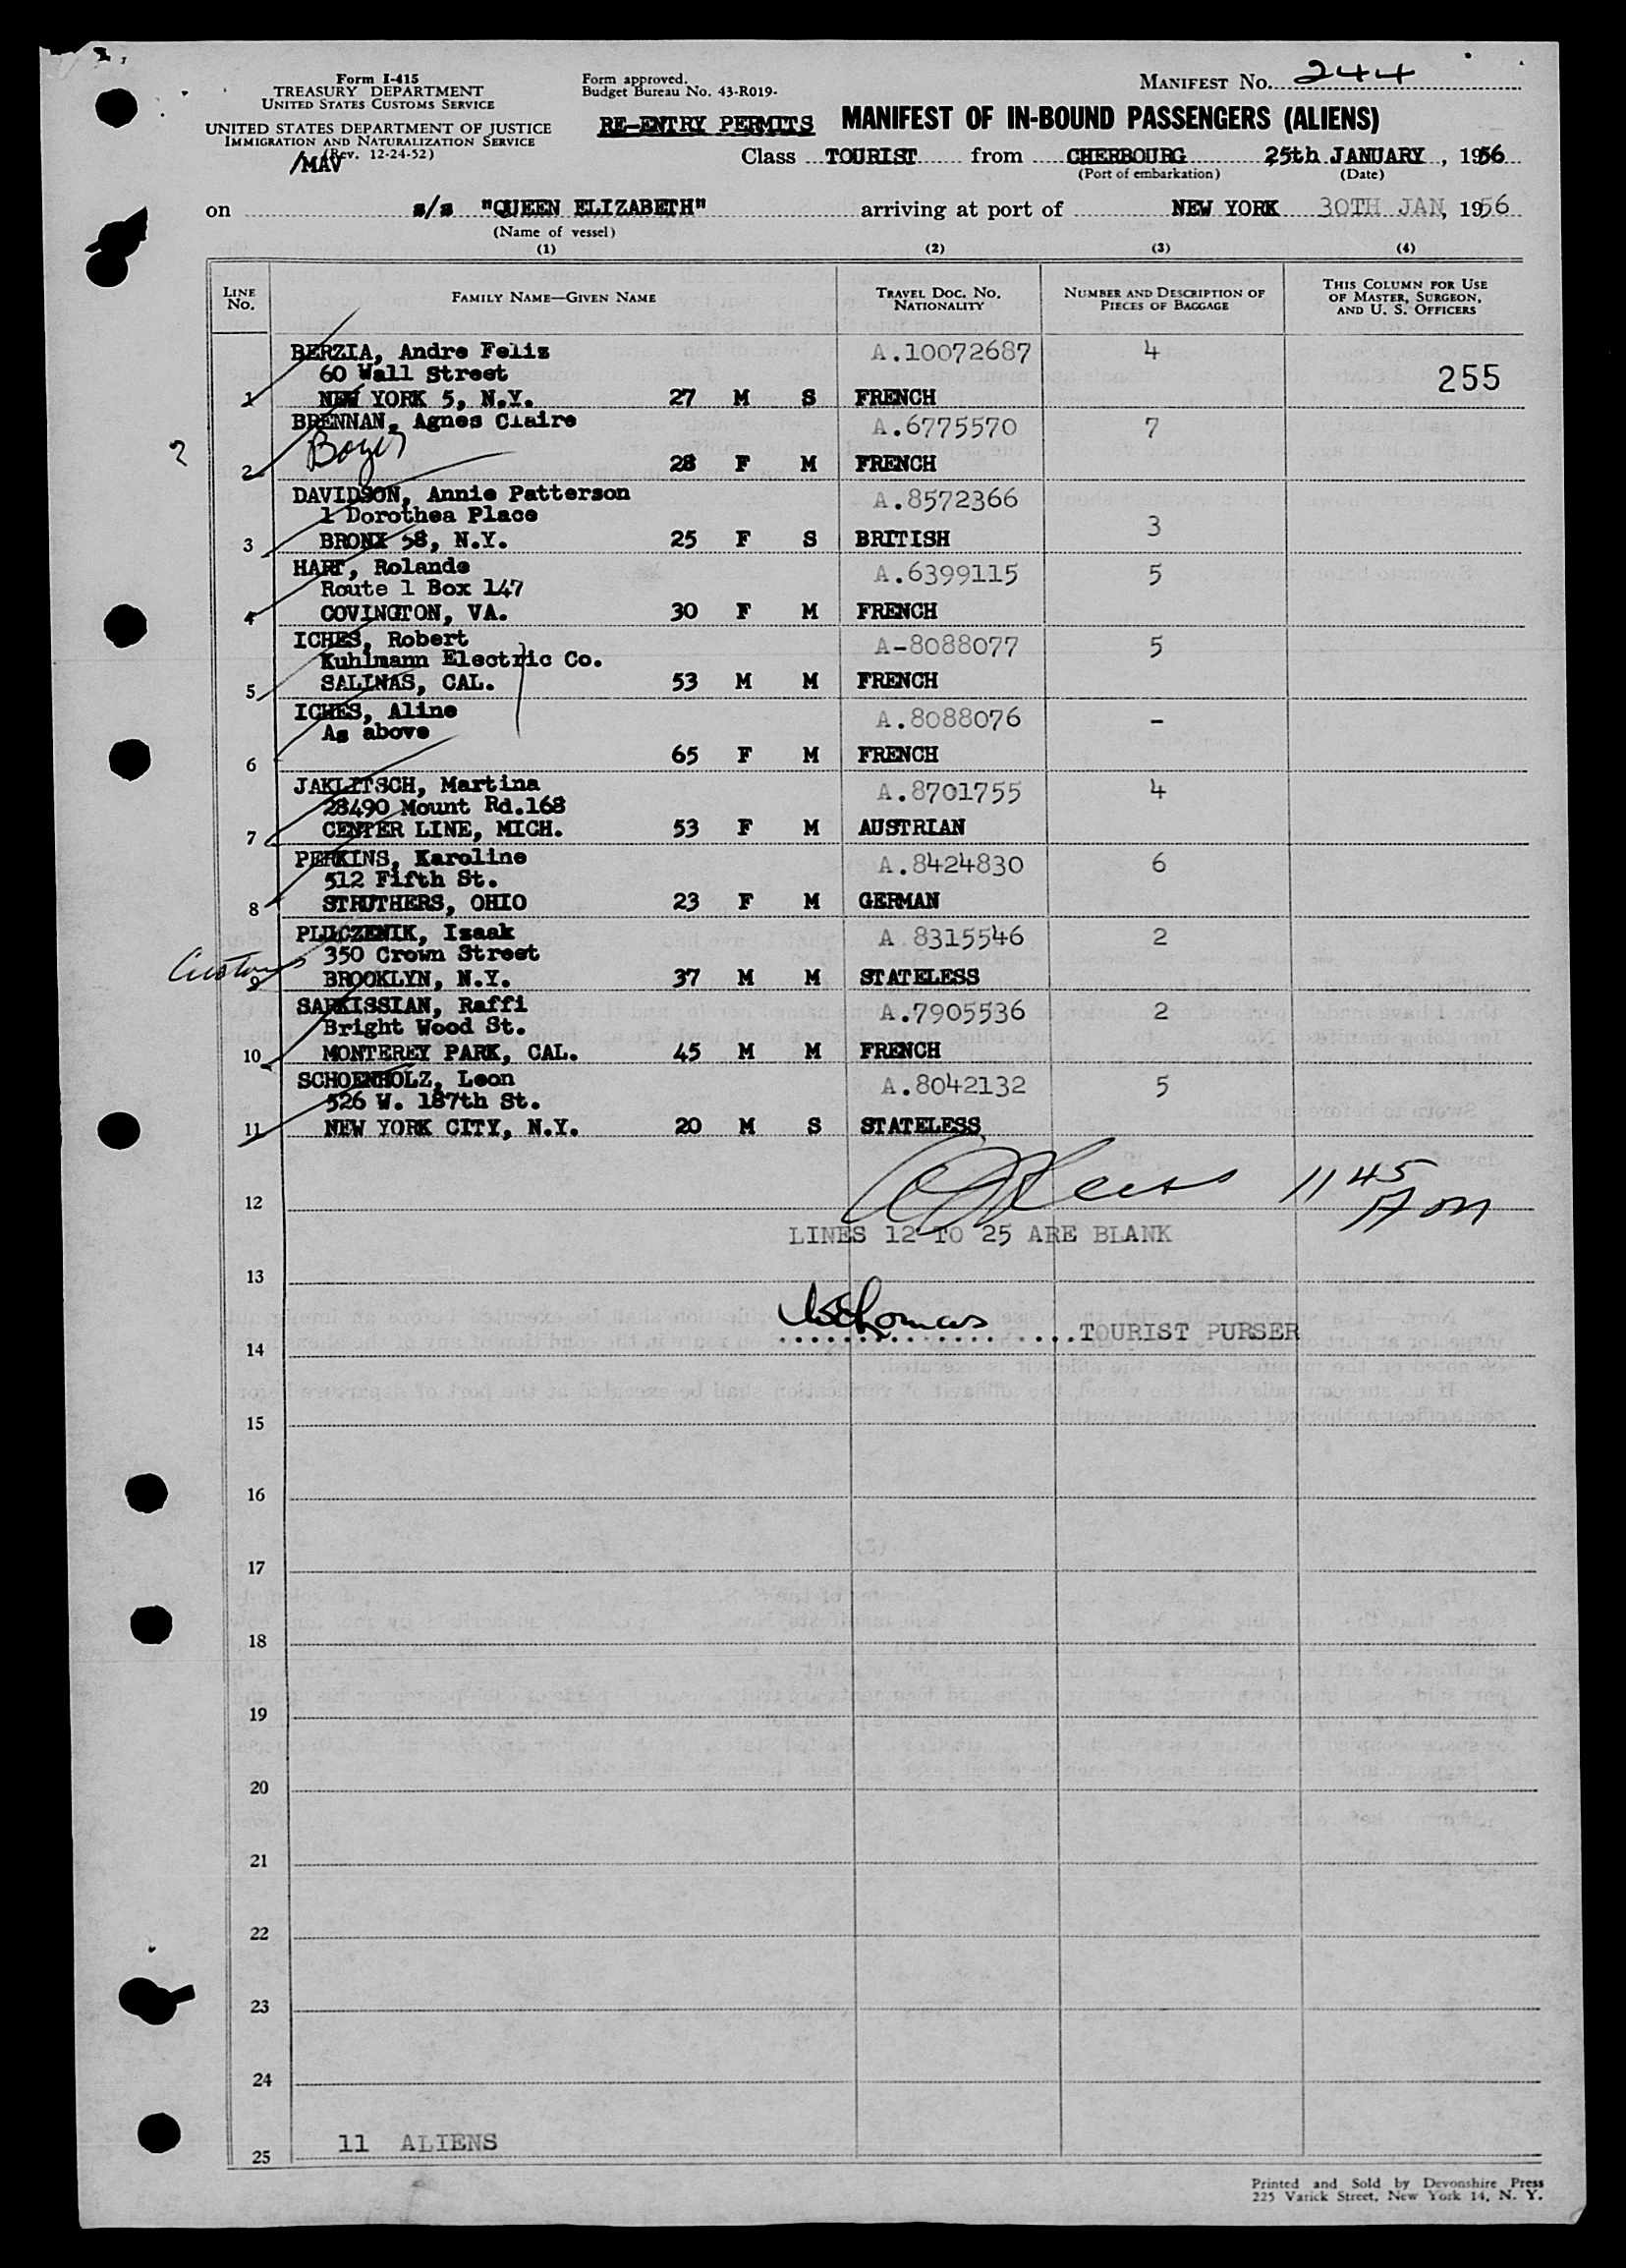 Form I-415
TREASURY DEPARTMENT
UNITED STATES CUSTOMS SERVICE
UNITED STATES DEPARTMENT OF JUSTICE
IMMIGRATION AND NATURALIZATION SERVICE
(Rev. 12-24-52)
/MAV
Form approved.
Budget Bureau No. 43-R019-
MANIFEST No. 244
RE-ENTRY PERMITS MANIFEST OF IN-BOUND PASSENGERS (ALIENS)
Class TOURIST from CHERBOURG 25th JANUARY, 1956
(Port of embarkation) (Date)
on s/s "QUEEN ELIZABETH" arriving at port of NEW YORK 30TH JAN, 1956
(Name of vessel)
(1) (2) (3) (4)
LINE No. FAMILY NAME—GIVEN NAME TRAVEL DOC. NO. NATIONALITY NUMBER AND DESCRIPTION OF PIECES OF BAGGAGE THIS COLUMN FOR USE OF MASTER, SURGEON, AND U. S. OFFICERS
BERZIA, Andre Felix A.10072687 4
60 Wall Street 255
1 NEW YORK 5, N.Y. 27 M S FRENCH
BRENNAN, Agnes Claire A.6775570 7
?
2 28 F M FRENCH
DAVIDSON, Annie Patterson A.8572366
1 Dorothea Place 3
3 BRONX 58, N.Y. 25 F S BRITISH
HART, Rolande A.6399115 5
Route 1 Box 147
4 COVINGTON, VA. 30 F M FRENCH
ICHES, Robert A-8088077 5
Kuhlmann Electric Co.
5 SALINAS, CAL. 53 M M FRENCH
ICHES, Aline A.8088076 -
As above
6 65 F M FRENCH
JAKLITSCH, Martina A.8701755 4
28490 Mount Rd.168
7 CENTER LINE, MICH. 53 F M AUSTRIAN
PERKINS, Karoline A.8424830 6
512 Fifth St.
8 STRUTHERS, OHIO 23 F M GERMAN
PLUCZENIK, Isaak A 8315546 2
350 Crown Street
Customs
9 BROOKLYN, N.Y. 37 M M STATELESS
SARKISSIAN, Raffi A.7905536 2
Bright Wood St.
10 MONTEREY PARK, CAL. 45 M M FRENCH
SCHOENHOLZ, Leon A.8042132 5
526 W. 187th St.
11 NEW YORK CITY, N.Y. 20 M S STATELESS
1145
12
LINES 12 TO 25 ARE BLANK
13
14 TOURIST PURSER
15
16
17
18
19
20
21
22
23
24
11 ALIENS
25
Printed and Sold by Devonshire Press
225 Varick Street, New York 14, N. Y.